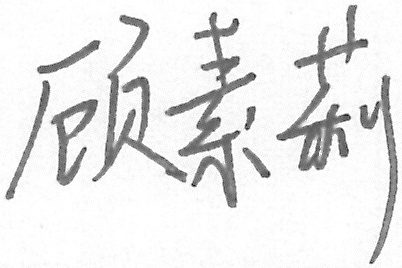 顾素莉